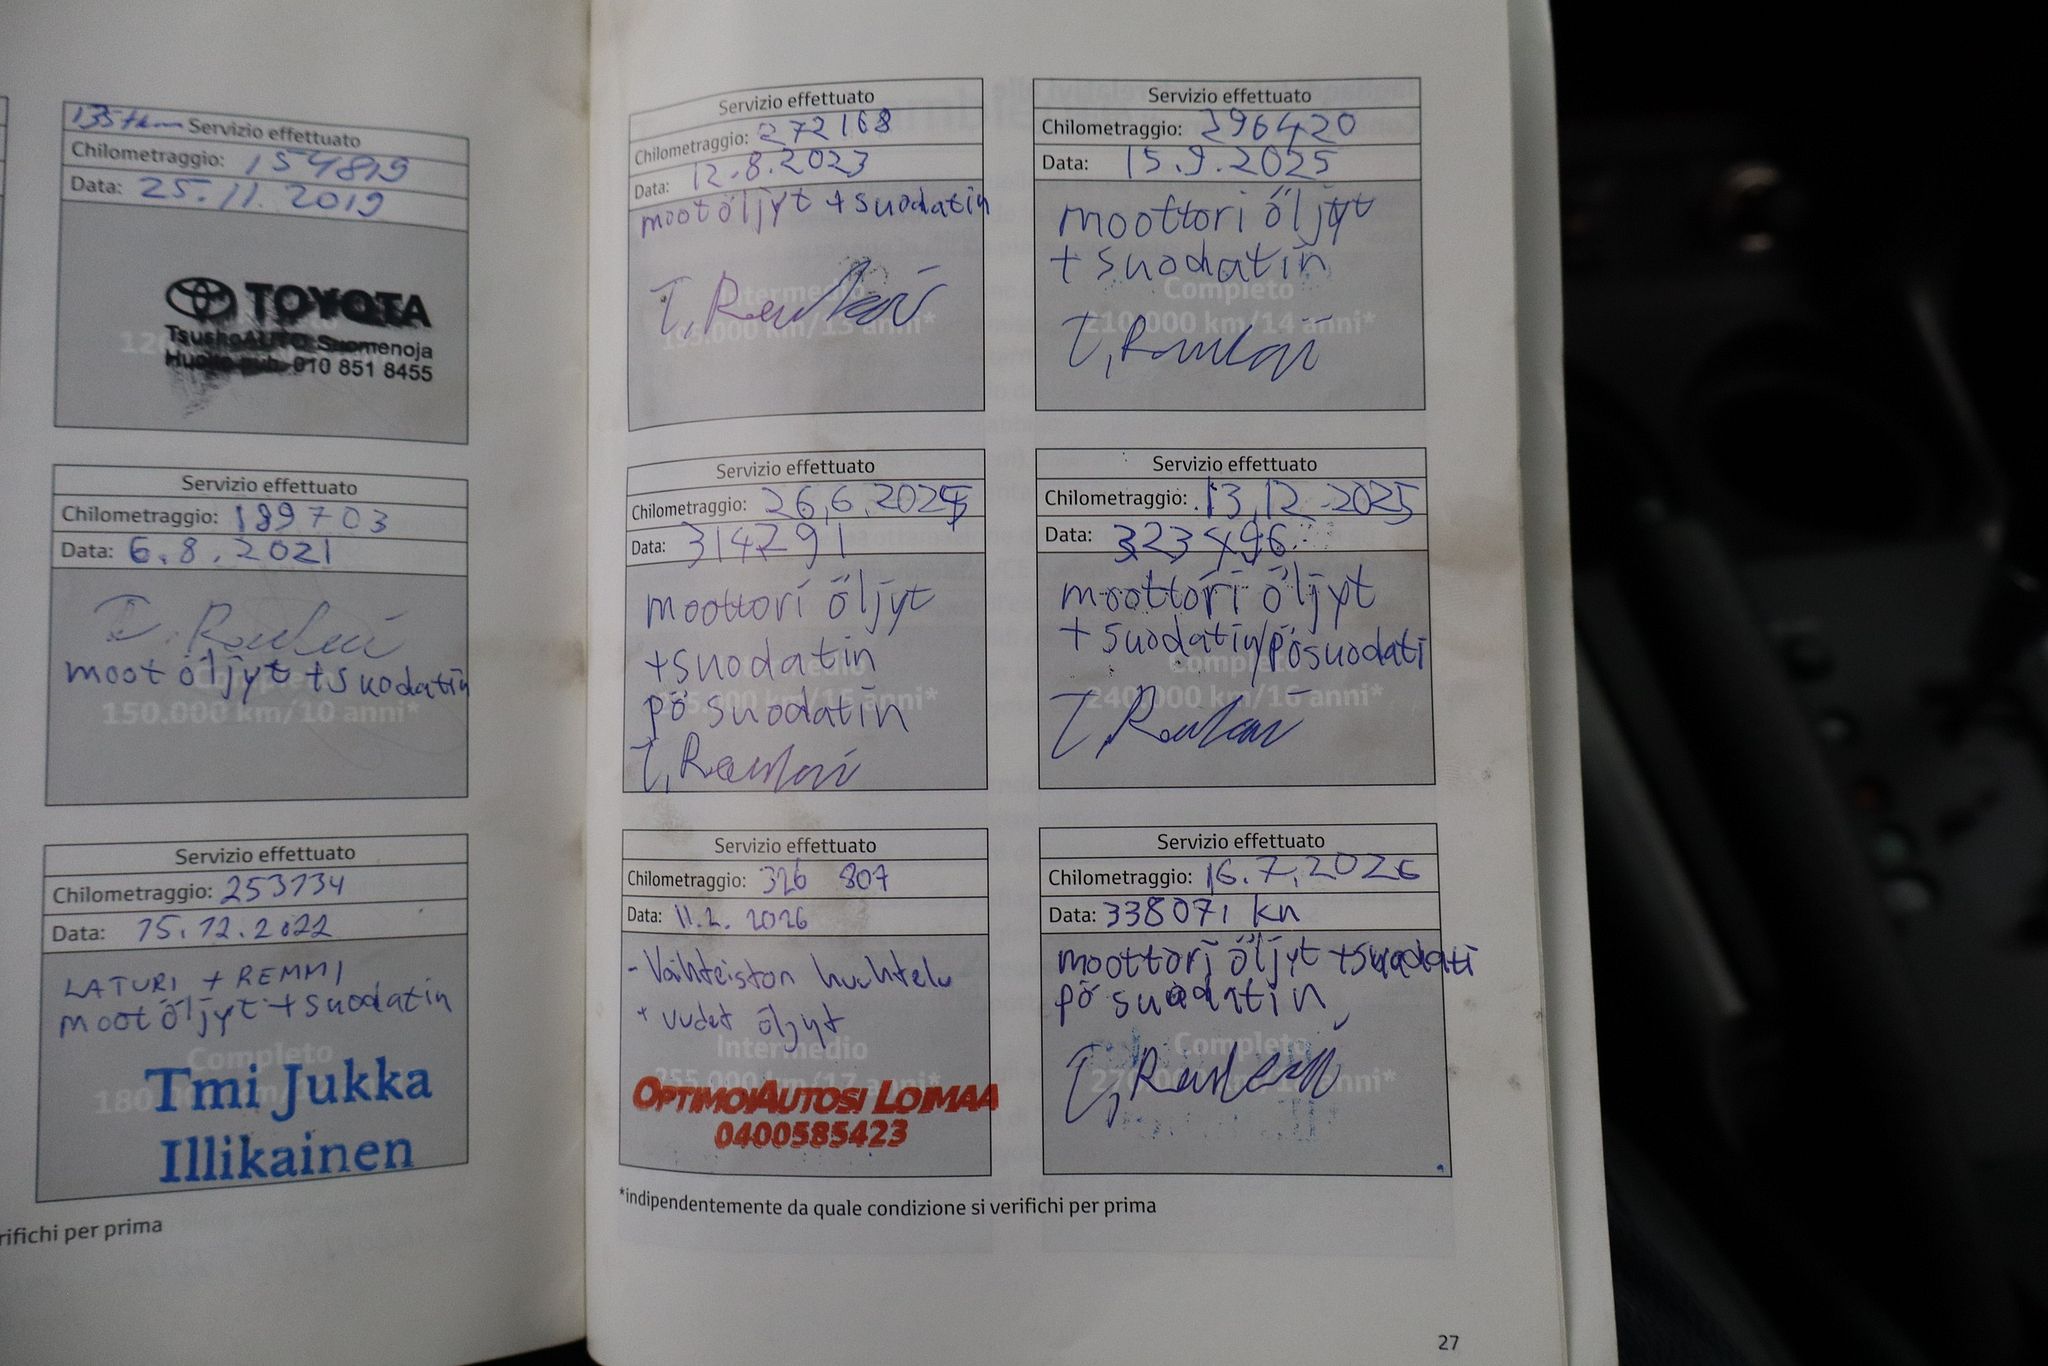 135tkm Servizio effettuato
Chilometraggio: 154819
Data: 25.11.2019
TOYOTA
TsushoAUTO Suomenoja
Huolto puh. 010 851 8455
Servizio effettuato
Chilometraggio: 189703
Data: 6.8.2021
moot öljyt + suodatin
Completo
150.000 km/10 anni*
Servizio effettuato
Chilometraggio: 253134
Data: 15.12.2022
LATURI + REMMI
moot öljyt + suodatin
Completo
Tmi Jukka
Illikainen
rifichi per prima
Servizio effettuato
Chilometraggio: 272168
Data: 12.8.2023
moot öljyt + suodatin
Intermedio
195.000 km/13 anni*
Servizio effettuato
Chilometraggio: 296420
Data: 15.9.2025
moottori öljyt
+ suodatin
Completo
210.000 km/14 anni*
Servizio effettuato
Chilometraggio: 26,6,2025
Data: 314291
moottori öljyt
+suodatin
pö suodatin
Servizio effettuato
Chilometraggio: 13,12-2025
Data: 323496
moottori öljyt
+ suodatin/pösuodati
Completo
240.000 km/16 anni*
Servizio effettuato
Chilometraggio: 326 807
Data: 11.2. 2026
- Vaihteiston huuhtelu
+ uudet öljyt
Intermedio
255.000 km/17 anni*
OPTIMOIAUTOSI LOIMAA
0400585423
Servizio effettuato
Chilometraggio: 16.7.2026
Data: 338071 km
moottori öljyt +suodati
pö suodatin
Completo
270.000 km/18 anni*
*indipendentemente da quale condizione si verifichi per prima
27